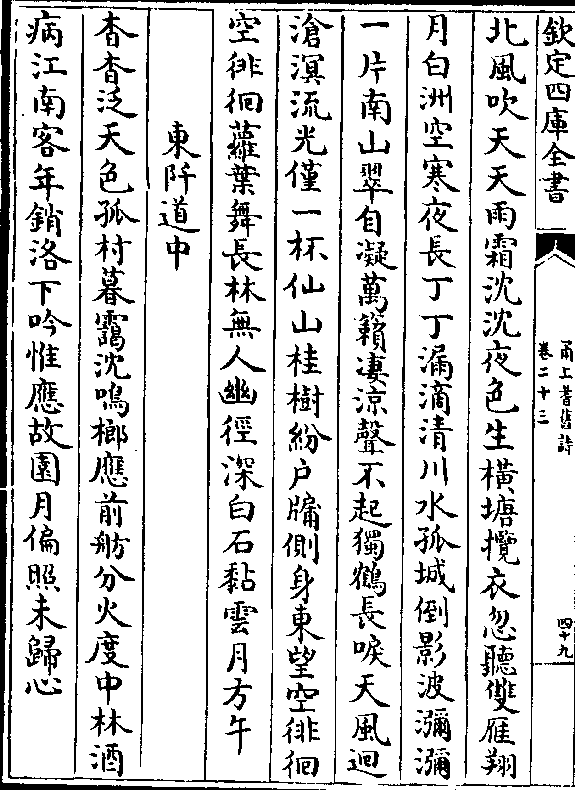 欽定四庫全書
甬上耆舊詩
卷二十三
四十九
北風吹天天雨霜沈沈夜色生橫塘攬衣忽聽雙雁翔
月白洲空寒夜長丁丁漏滴清川水孤城倒影波瀰瀰
一片南山翠自凝萬籟淒涼聲不起獨鶴長唳天風迴
滄溟流光僅一杯仙山桂樹紛戶牖側身東望空徘徊
空徘徊蘿葉舞長林無人幽徑深白石黏雲月方午
東阡道中
杳杳泛天色孤村暮靄沈鳴榔應前舫分火度中林酒
病江南客年銷洛下吟惟應故園月偏照未歸心